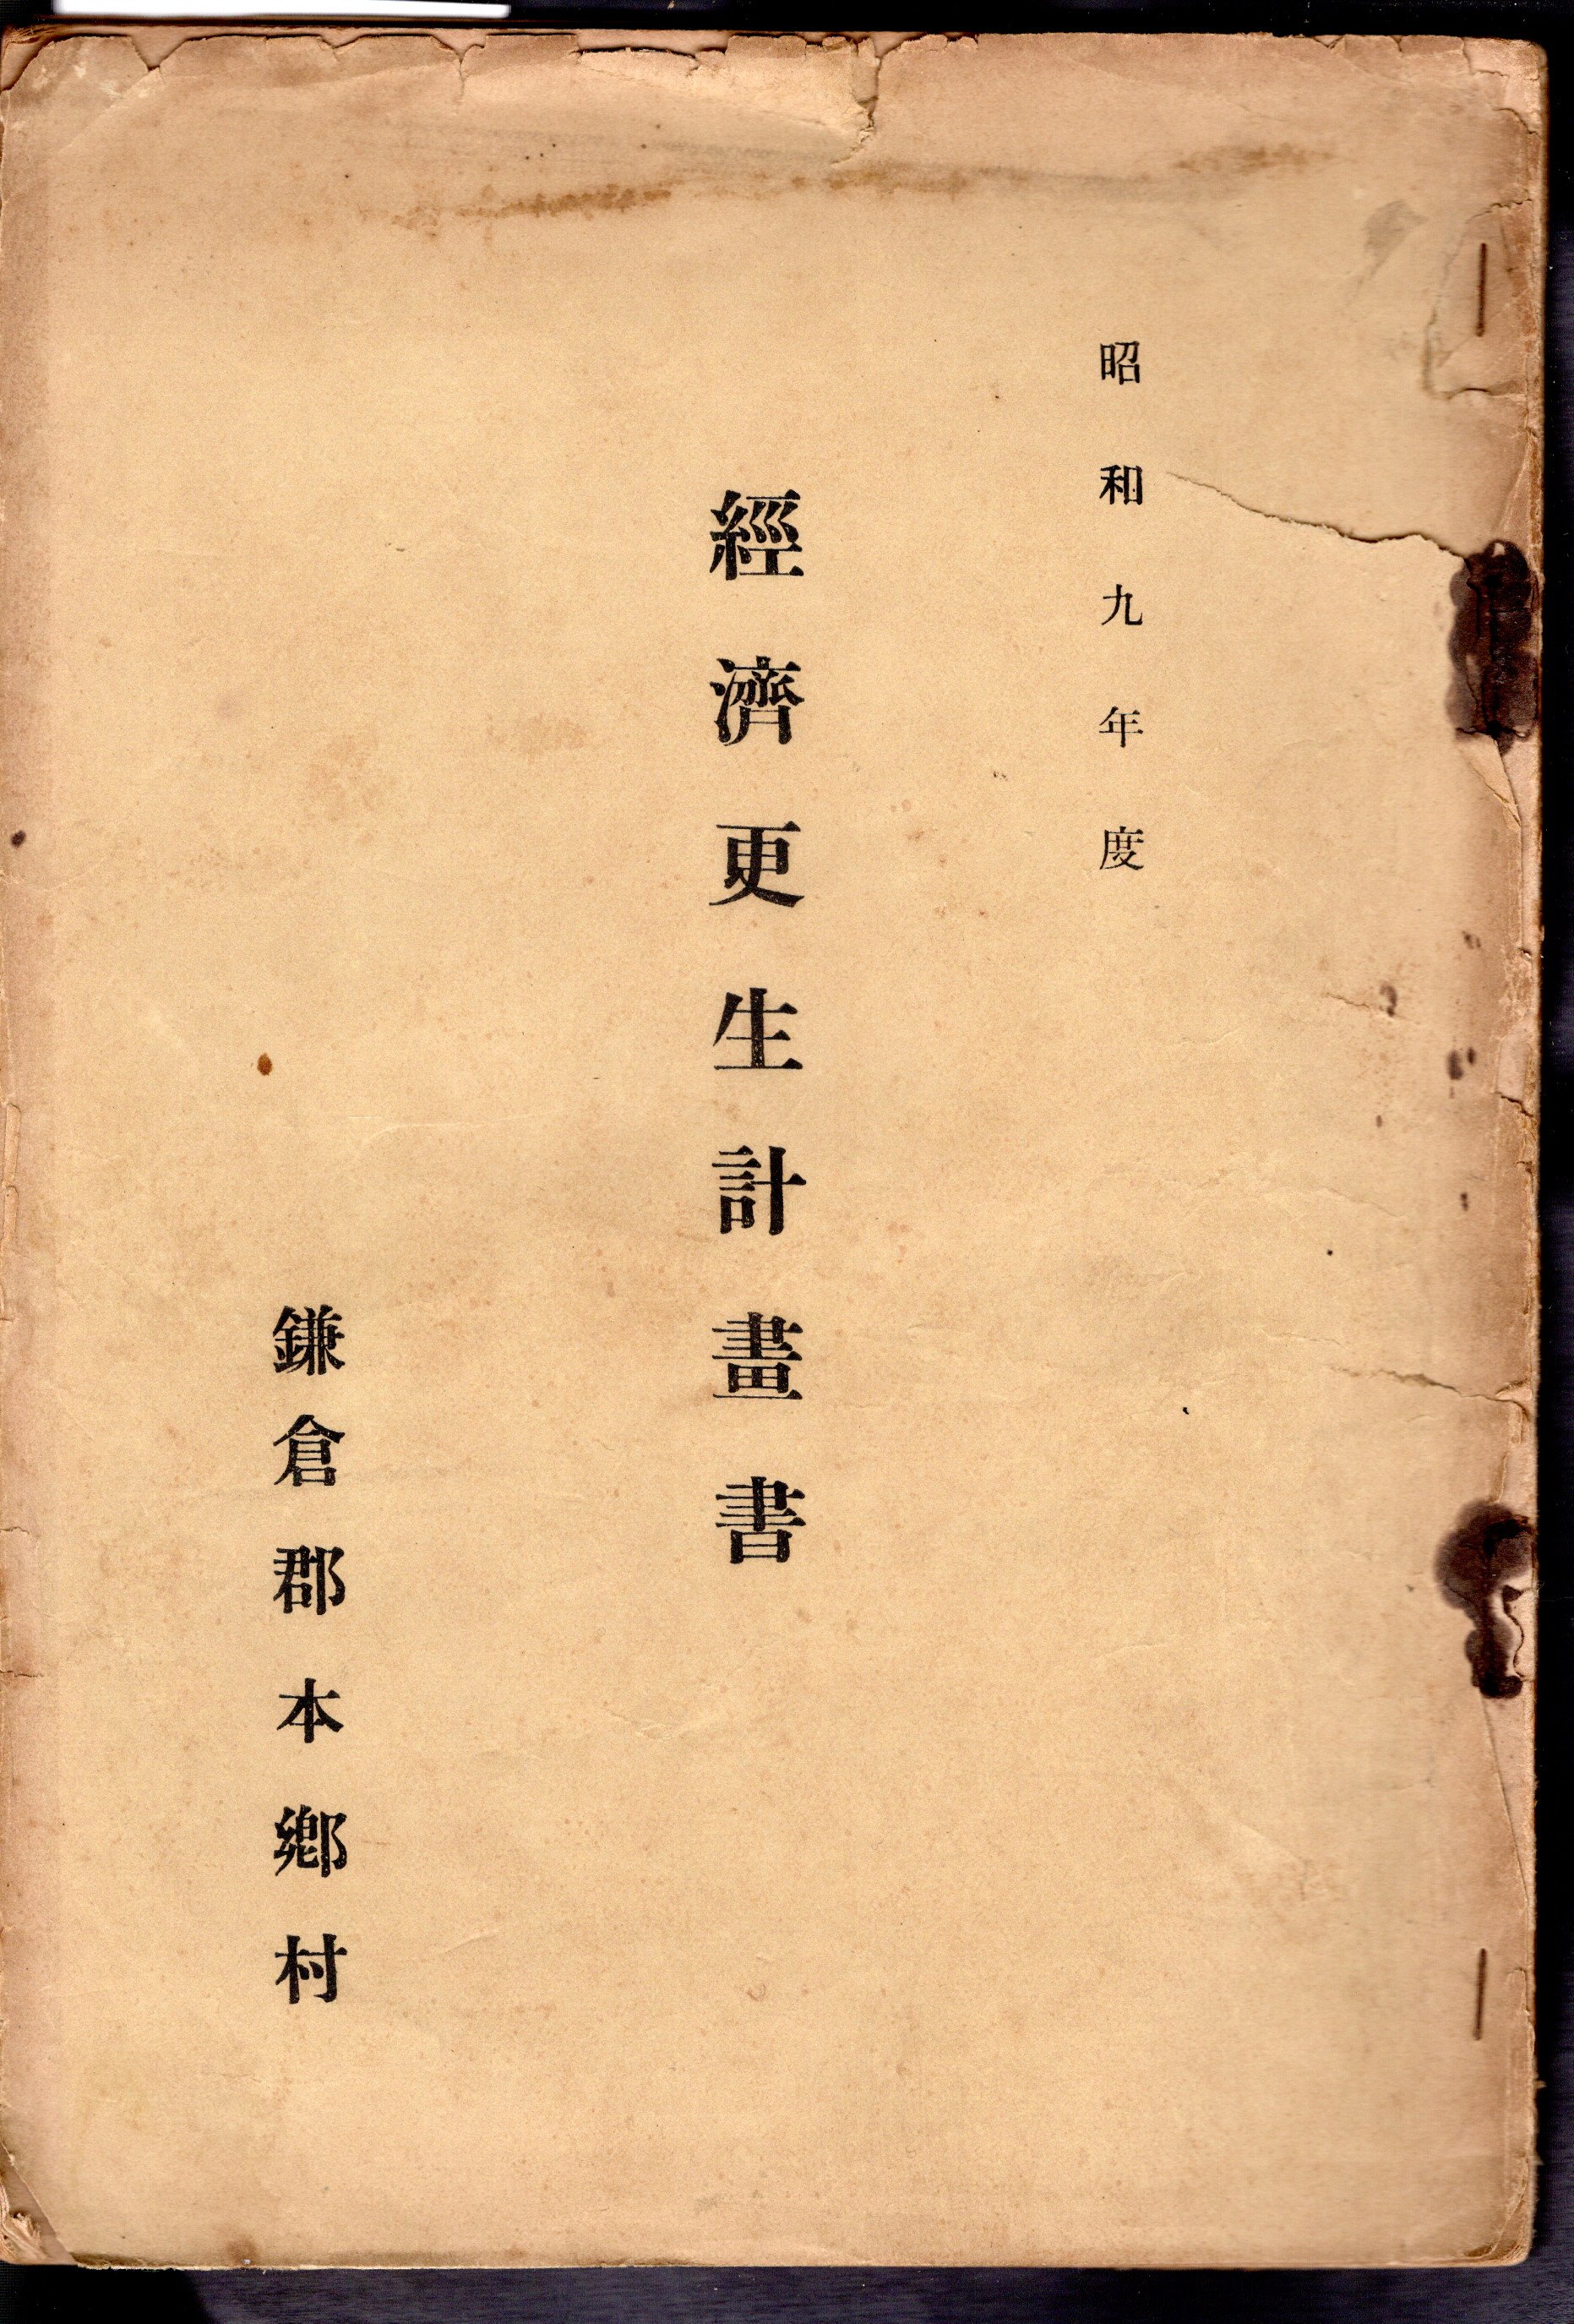 昭和九年度
經濟更生計畫書
鎌倉郡本鄕村